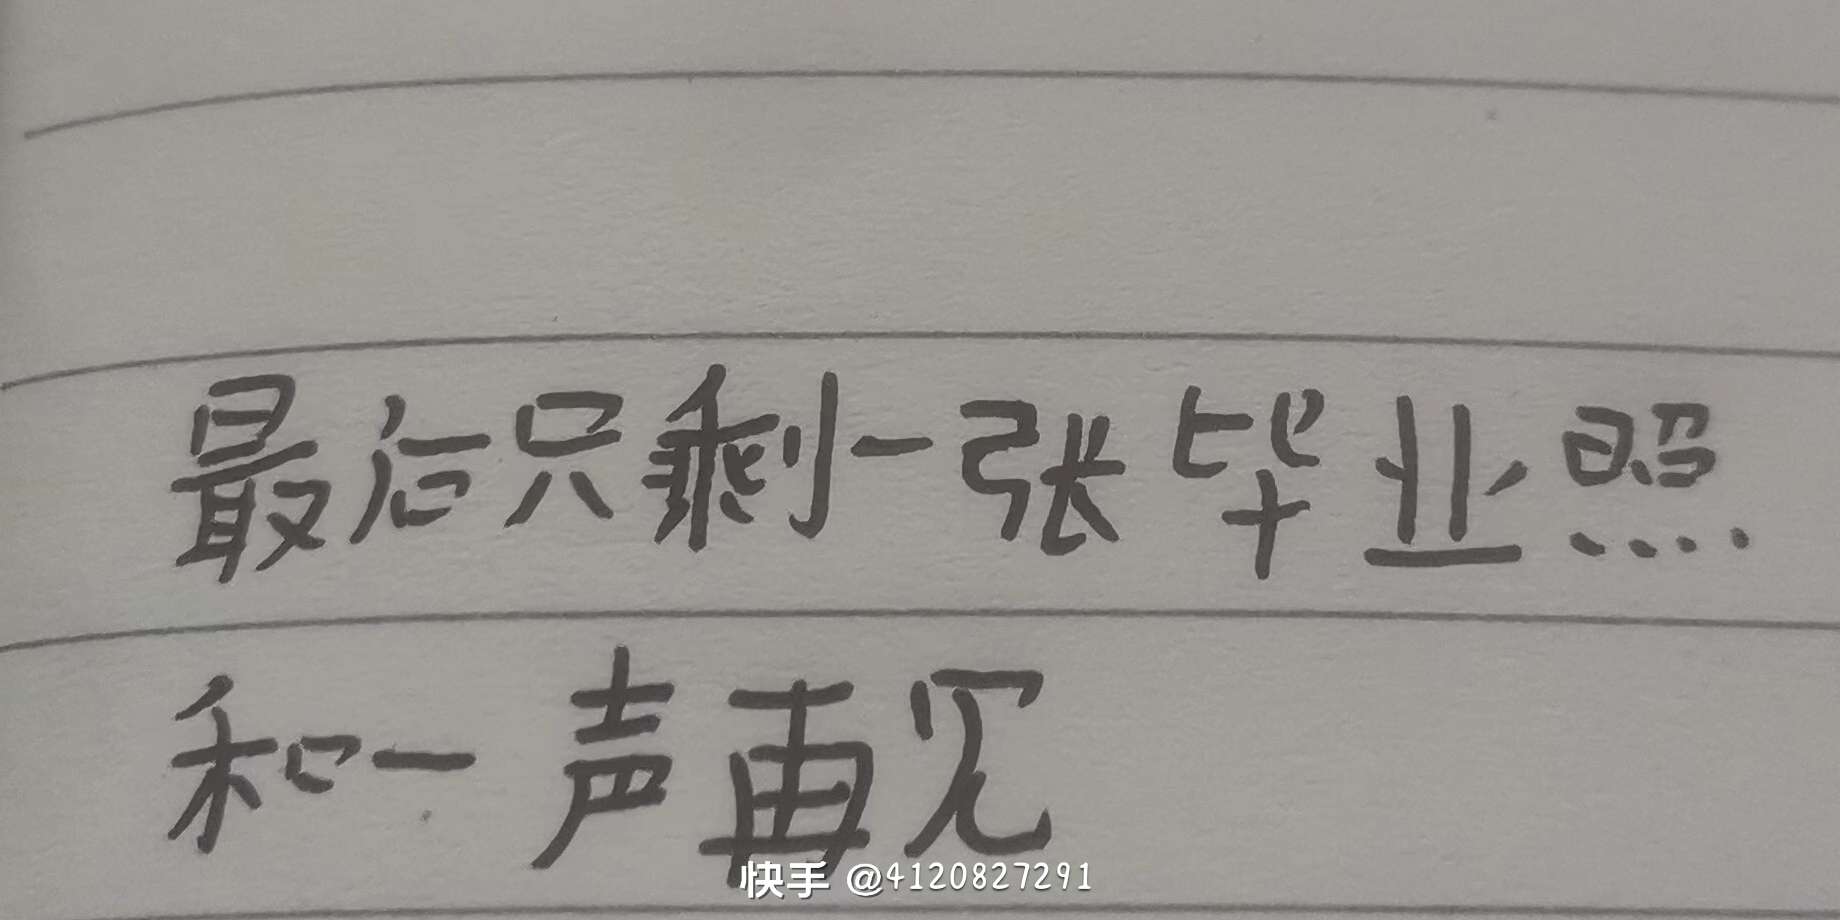 最后只剩一张毕业照
和一声再见
快手 @4120827291